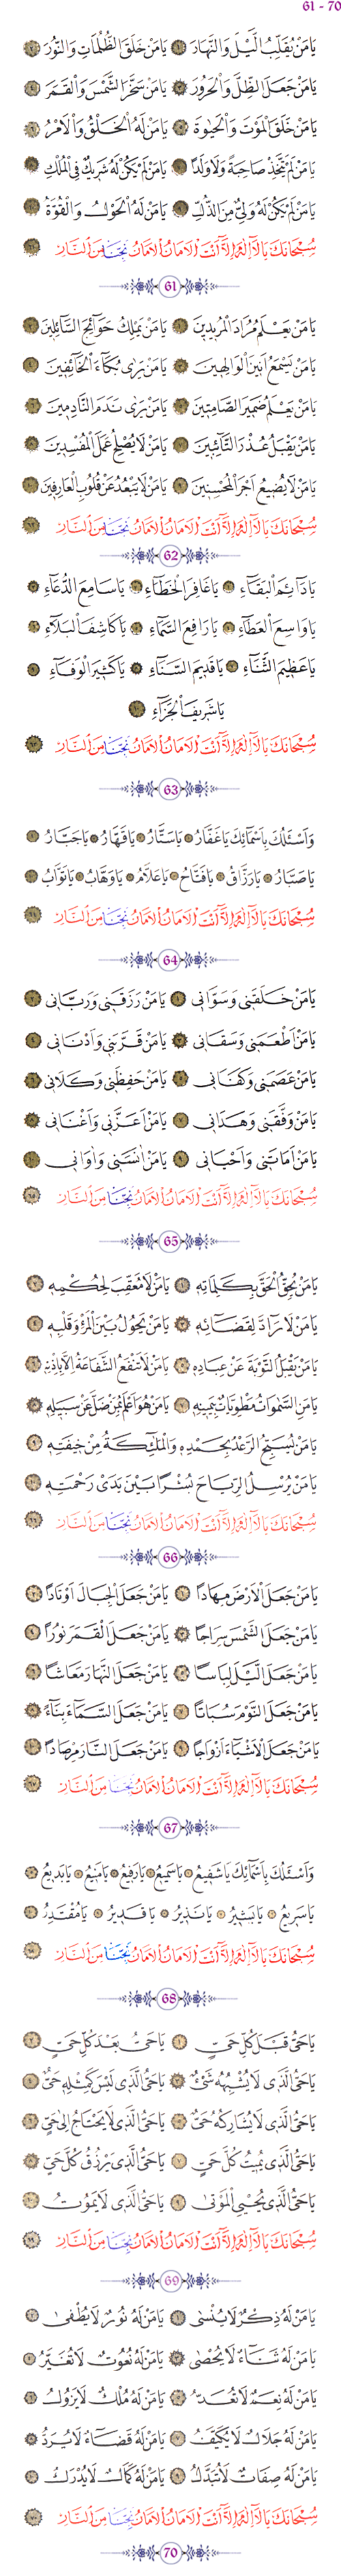 61 - 70
يَا مَنْ يُقَلِّبُ الَّيْلَ وَالنَّهَارَ ١ يَا مَنْ خَلَقَ الظُّلُمَاتِ وَالنُّورَ ٢
يَا مَنْ جَعَلَ الظِّلَّ وَالْحَرُورَ ٣ يَا مَنْ سَخَّرَ الشَّمْسَ وَالْقَمَرَ ٤
يَا مَنْ خَلَقَ الْمَوْتَ وَالْحَيٰوةَ ٥ يَا مَنْ لَهُ الْخَلْقُ وَالْاَمْرُ ٦
يَا مَنْ لَمْ يَتَّخِذْ صَاحِبَةً وَلَا وَلَدًا ٧ يَا مَنْ لَمْ يَكُنْ لَهُ شَرِيكٌ فِي الْمُلْكِ ٨
يَا مَنْ لَمْ يَكُنْ لَهُ وَلِيٌّ مِنَ الذُّلِّ ٩ يَا مَنْ لَهُ الْحَوْلُ وَالْقُوَّةُ ١٠
سُبْحَانَكَ يَا لَٓا اِلٰهَ اِلَّٓا اَنْتَ الْاَمَانُ الْاَمَانُ نَجِّنَا مِنَ النَّارِ ٦١
61
يَا مَنْ يَعْلَمُ مُرَادَ الْمُرِيدِينَ ١ يَا مَنْ يَمْلِكُ حَوَٓائِجَ السَّٓائِلِينَ ٢
يَا مَنْ يَسْمَعُ اَنِينَ الْوَالِهِينَ ٣ يَا مَنْ يَرٰى بُكَٓاءَ الْخَٓائِفِينَ ٤
يَا مَنْ يَعْلَمُ ضَمِيرَ الصَّامِتِينَ ٥ يَا مَنْ يَرٰى نَدَمَ النَّادِمِينَ ٦
يَا مَنْ يَقْبَلُ عُذْرَ التَّٓائِبِينَ ٧ يَا مَنْ لَا يُصْلِحُ عَمَلَ الْمُفْسِدِينَ ٨
يَا مَنْ لَا يُضِيعُ اَجْرَ الْمُحْسِنِينَ ٩ يَا مَنْ لَا يَبْعُدُ عَنْ قُلُوبِ الْعَارِفِينَ ١٠
سُبْحَانَكَ يَا لَٓا اِلٰهَ اِلَّٓا اَنْتَ الْاَمَانُ الْاَمَانُ نَجِّنَا مِنَ النَّارِ ٦٢
62
يَا دَٓائِمَ الْبَقَٓاءِ ١ يَا غَافِرَ الْخَطَٓاءِ ٢ يَا سَامِعَ الدُّعَٓاءِ ٣
يَا وَاسِعَ الْعَطَٓاءِ ٤ يَا رَافِعَ السَّمَٓاءِ ٥ يَا كَاشِفَ الْبَلَٓاءِ ٦
يَا عَظِيمَ الثَّنَٓاءِ ٧ يَا قَدِيمَ السَّنَٓاءِ ٨ يَا كَثِيرَ الْوَفَٓاءِ ٩
يَا شَرِيفَ الْجَزَٓاءِ ١٠
سُبْحَانَكَ يَا لَٓا اِلٰهَ اِلَّٓا اَنْتَ الْاَمَانُ الْاَمَانُ نَجِّنَا مِنَ النَّارِ ٦٣
63
وَاَسْئَلُكَ بِاَسْمَٓائِكَ يَا غَفَّارُ ١ يَا سَتَّارُ ٢ يَا قَهَّارُ ٣ يَا جَبَّارُ ٤
يَا صَبَّارُ ٥ يَا رَزَّاقُ ٦ يَا فَتَّاحُ ٧ يَا عَلَّامُ ٨ يَا وَهَّابُ ٩ يَا تَوَّابُ ١٠
سُبْحَانَكَ يَا لَٓا اِلٰهَ اِلَّٓا اَنْتَ الْاَمَانُ الْاَمَانُ نَجِّنَا مِنَ النَّارِ ٦٤
64
يَا مَنْ خَلَقَنِي وَسَوَّانِي ١ يَا مَنْ رَزَقَنِي وَرَبَّانِي ٢
يَا مَنْ اَطْعَمَنِي وَسَقَانِي ٣ يَا مَنْ قَرَّبَنِي وَاَدْنَانِي ٤
يَا مَنْ عَصَمَنِي وَكَفَانِي ٥ يَا مَنْ حَفِظَنِي وَكَلَانِي ٦
يَا مَنْ وَفَّقَنِي وَهَدَانِي ٧ يَا مَنْ اَعَزَّنِي وَاَغْنَانِي ٨
يَا مَنْ اَمَاتَنِي وَاَحْيَانِي ٩ يَا مَنْ اٰنَسَنِي وَاٰوَانِي ١٠
سُبْحَانَكَ يَا لَٓا اِلٰهَ اِلَّٓا اَنْتَ الْاَمَانُ الْاَمَانُ نَجِّنَا مِنَ النَّارِ ٦٥
65
يَا مَنْ يُحِقُّ الْحَقَّ بِكَلِمَاتِهِ ١ يَا مَنْ لَا مُعَقِّبَ لِحُكْمِهِ ٢
يَا مَنْ لَا رَٓادَّ لِقَضَٓائِهِ ٣ يَا مَنْ يَحُولُ بَيْنَ الْمَرْءِ وَقَلْبِهِ ٤
يَا مَنْ يَقْبَلُ التَّوْبَةَ عَنْ عِبَادِهِ ٥ يَا مَنْ لَا تَنْفَعُ الشَّفَاعَةُ اِلَّا بِاِذْنِهِ ٦
يَا مَنِ السَّمٰوَاتُ مَطْوِيَّاتٌ بِيَمِينِهِ ٧ يَا مَنْ هُوَ اَعْلَمُ بِمَنْ ضَلَّ عَنْ سَبِيلِهِ ٨
يَا مَنْ يُسَبِّحُ الرَّعْدُ بِحَمْدِهِ وَالْمَلٰٓئِكَةُ مِنْ خِيفَتِهِ ٩
يَا مَنْ يُرْسِلُ الرِّيَاحَ بُشْرًا بَيْنَ يَدَيْ رَحْمَتِهِ ١٠
سُبْحَانَكَ يَا لَٓا اِلٰهَ اِلَّٓا اَنْتَ الْاَمَانُ الْاَمَانُ نَجِّنَا مِنَ النَّارِ ٦٦
66
يَا مَنْ جَعَلَ الْاَرْضَ مِهَادًا ١ يَا مَنْ جَعَلَ الْجِبَالَ اَوْتَادًا ٢
يَا مَنْ جَعَلَ الشَّمْسَ سِرَاجًا ٣ يَا مَنْ جَعَلَ الْقَمَرَ نُورًا ٤
يَا مَنْ جَعَلَ الَّيْلَ لِبَاسًا ٥ يَا مَنْ جَعَلَ النَّهَارَ مَعَاشًا ٦
يَا مَنْ جَعَلَ النَّوْمَ سُبَاتًا ٧ يَا مَنْ جَعَلَ السَّمَٓاءَ بِنَٓاءً ٨
يَا مَنْ جَعَلَ الْاَشْيَٓاءَ اَزْوَاجًا ٩ يَا مَنْ جَعَلَ النَّارَ مِرْصَادًا ١٠
سُبْحَانَكَ يَا لَٓا اِلٰهَ اِلَّٓا اَنْتَ الْاَمَانُ الْاَمَانُ نَجِّنَا مِنَ النَّارِ ٦٧
67
وَاَسْئَلُكَ بِاَسْمَٓائِكَ يَا شَفِيعُ ١ يَا سَمِيعُ ٢ يَا رَفِيعُ ٣ يَا مَنِيعُ ٤ يَا بَدِيعُ ٥
يَا سَرِيعُ ٦ يَا بَشِيرُ ٧ يَا نَذِيرُ ٨ يَا قَدِيرُ ٩ يَا مُقْتَدِرُ ١٠
سُبْحَانَكَ يَا لَٓا اِلٰهَ اِلَّٓا اَنْتَ الْاَمَانُ الْاَمَانُ نَجِّنَا مِنَ النَّارِ ٦٨
68
يَا حَيُّ قَبْلَ كُلِّ حَيٍّ ١ يَا حَيُّ بَعْدَ كُلِّ حَيٍّ ٢
يَا حَيُّ الَّذِي لَا يُشْبِهُهُ شَيْءٌ ٣ يَا حَيُّ الَّذِي لَيْسَ كَمِثْلِهِ حَيٌّ ٤
يَا حَيُّ الَّذِي لَا يُشَارِكُهُ حَيٌّ ٥ يَا حَيُّ الَّذِي لَا يَحْتَاجُ اِلٰى حَيٍّ ٦
يَا حَيُّ الَّذِي يُمِيتُ كُلَّ حَيٍّ ٧ يَا حَيُّ الَّذِي يَرْزُقُ كُلَّ حَيٍّ ٨
يَا حَيُّ الَّذِي يُحْيِي الْمَوْتٰى ٩ يَا حَيُّ الَّذِي لَا يَمُوتُ ١٠
سُبْحَانَكَ يَا لَٓا اِلٰهَ اِلَّٓا اَنْتَ الْاَمَانُ الْاَمَانُ نَجِّنَا مِنَ النَّارِ ٦٩
69
يَا مَنْ لَهُ ذِكْرٌ لَا يُنْسٰى ١ يَا مَنْ لَهُ نُورٌ لَا يُطْفٰى ٢
يَا مَنْ لَهُ ثَنَٓاءٌ لَا يُحْصٰى ٣ يَا مَنْ لَهُ نُعُوتٌ لَا تُغَيَّرُ ٤
يَا مَنْ لَهُ نِعَمٌ لَا تُعَدُّ ٥ يَا مَنْ لَهُ مُلْكٌ لَا يَزُولُ ٦
يَا مَنْ لَهُ جَلَالٌ لَا يُكَيَّفُ ٧ يَا مَنْ لَهُ قَضَٓاءٌ لَا يُرَدُّ ٨
يَا مَنْ لَهُ صِفَاتٌ لَا تُبَدَّلُ ٩ يَا مَنْ لَهُ كَمَالٌ لَا يُدْرَكُ ١٠
سُبْحَانَكَ يَا لَٓا اِلٰهَ اِلَّٓا اَنْتَ الْاَمَانُ الْاَمَانُ نَجِّنَا مِنَ النَّارِ ٧٠
70